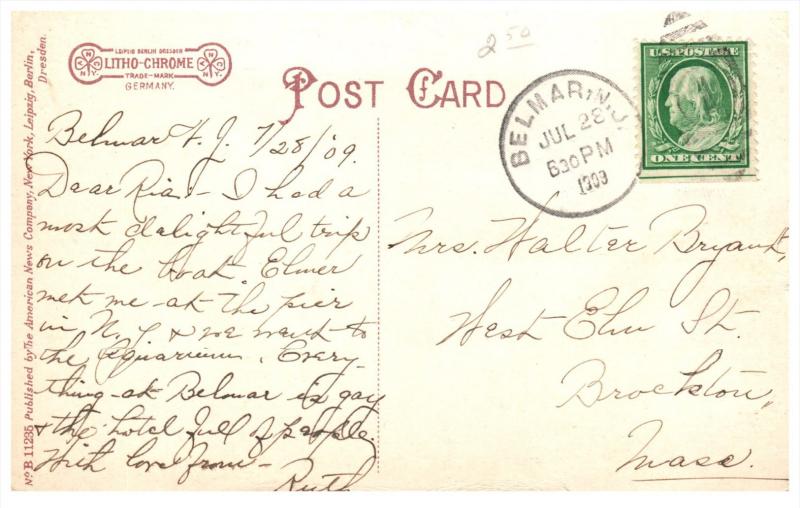 LEIPZIG BERLIN DRESDEN
LITHO-CHROME
TRADE-MARK
GERMANY.
POST CARD
2 50
BELMAR, N.J.
JUL 28
630 PM
1909
U.S. POSTAGE
ONE CENT
No B 11235 Published by The American News Company, New York, Leipzig, Berlin,
Dresden.
Belmar N. J. 7/28/09.
Dear Ria:- I had a
most delightful trip
on the boat. Elmer
met me at the pier
in N. Y & we went to
the Aquarium. Every-
thing at Belmar is gay
& the hotel full of people.
With love from-
Ruth
Mrs. Walter Bryant,
West Elm St.
Brockton,
Mass.